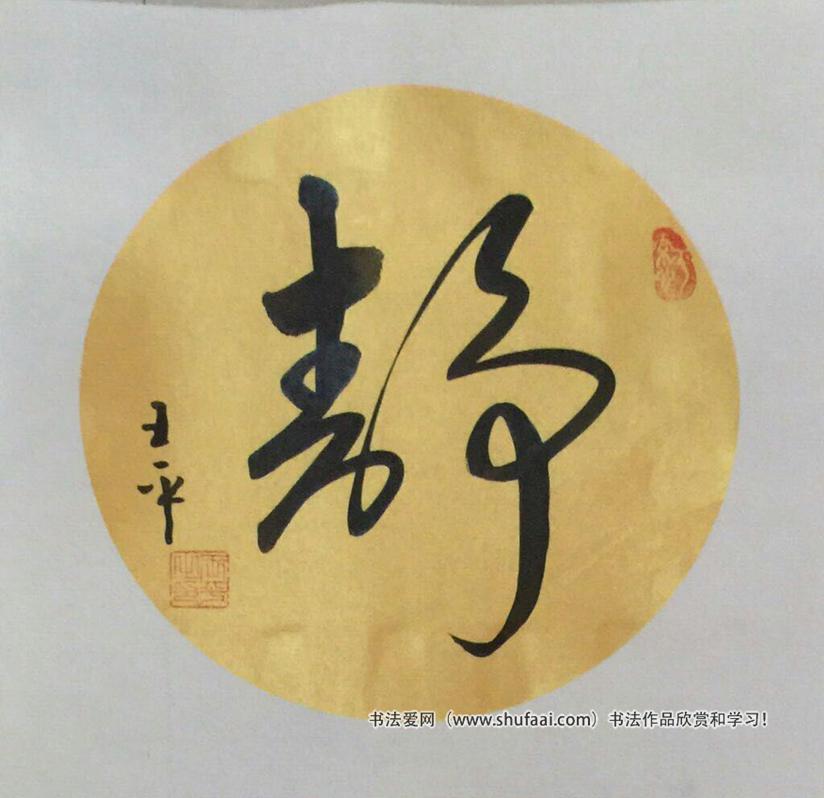 静
王平
书法爱网（www.shufaai.com）书法作品欣赏和学习！